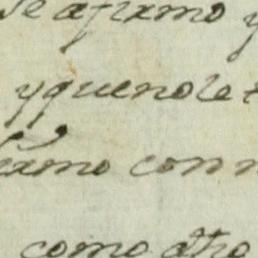 se afirmo y
y que no le
firmo con n
como dho